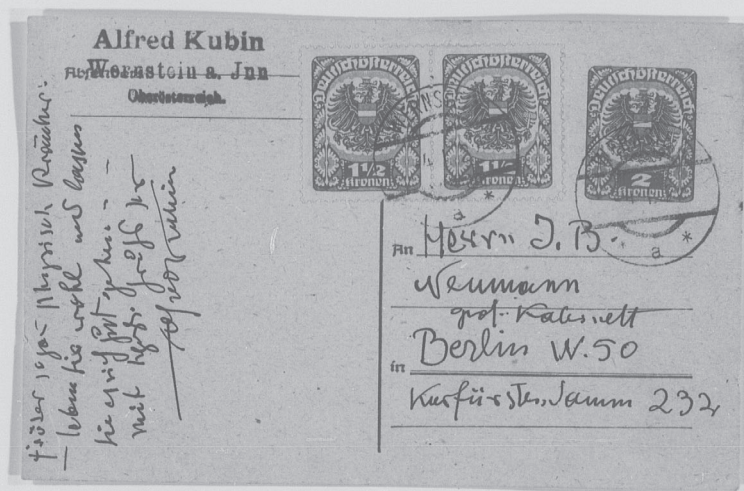 Alfred Kubin
Wernstein a. Inn
Oberösterreich.
Deutschösterreich
1½
Kronen
Deutschösterreich
1½
Kronen
Deutschösterreich
2
Kronen
WERNS
a
*
a
*
An Herrn J. B.
Neumann
graf. Kabinett
in Berlin W. 50
Kurfürstendamm 232
physisch
leben Sie wohl und lassen
Sie sich's gut gehen - -
mit herzl. Grüß Ihr
Alfred Kubin